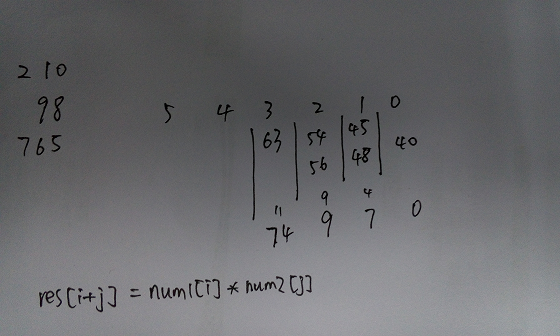 2 1 0
98
765
5 4 3 2 1 0
63 54 45 40
56 48
11 9 4
74 9 7 0
res[i+j] = num1[i] * num2[j]